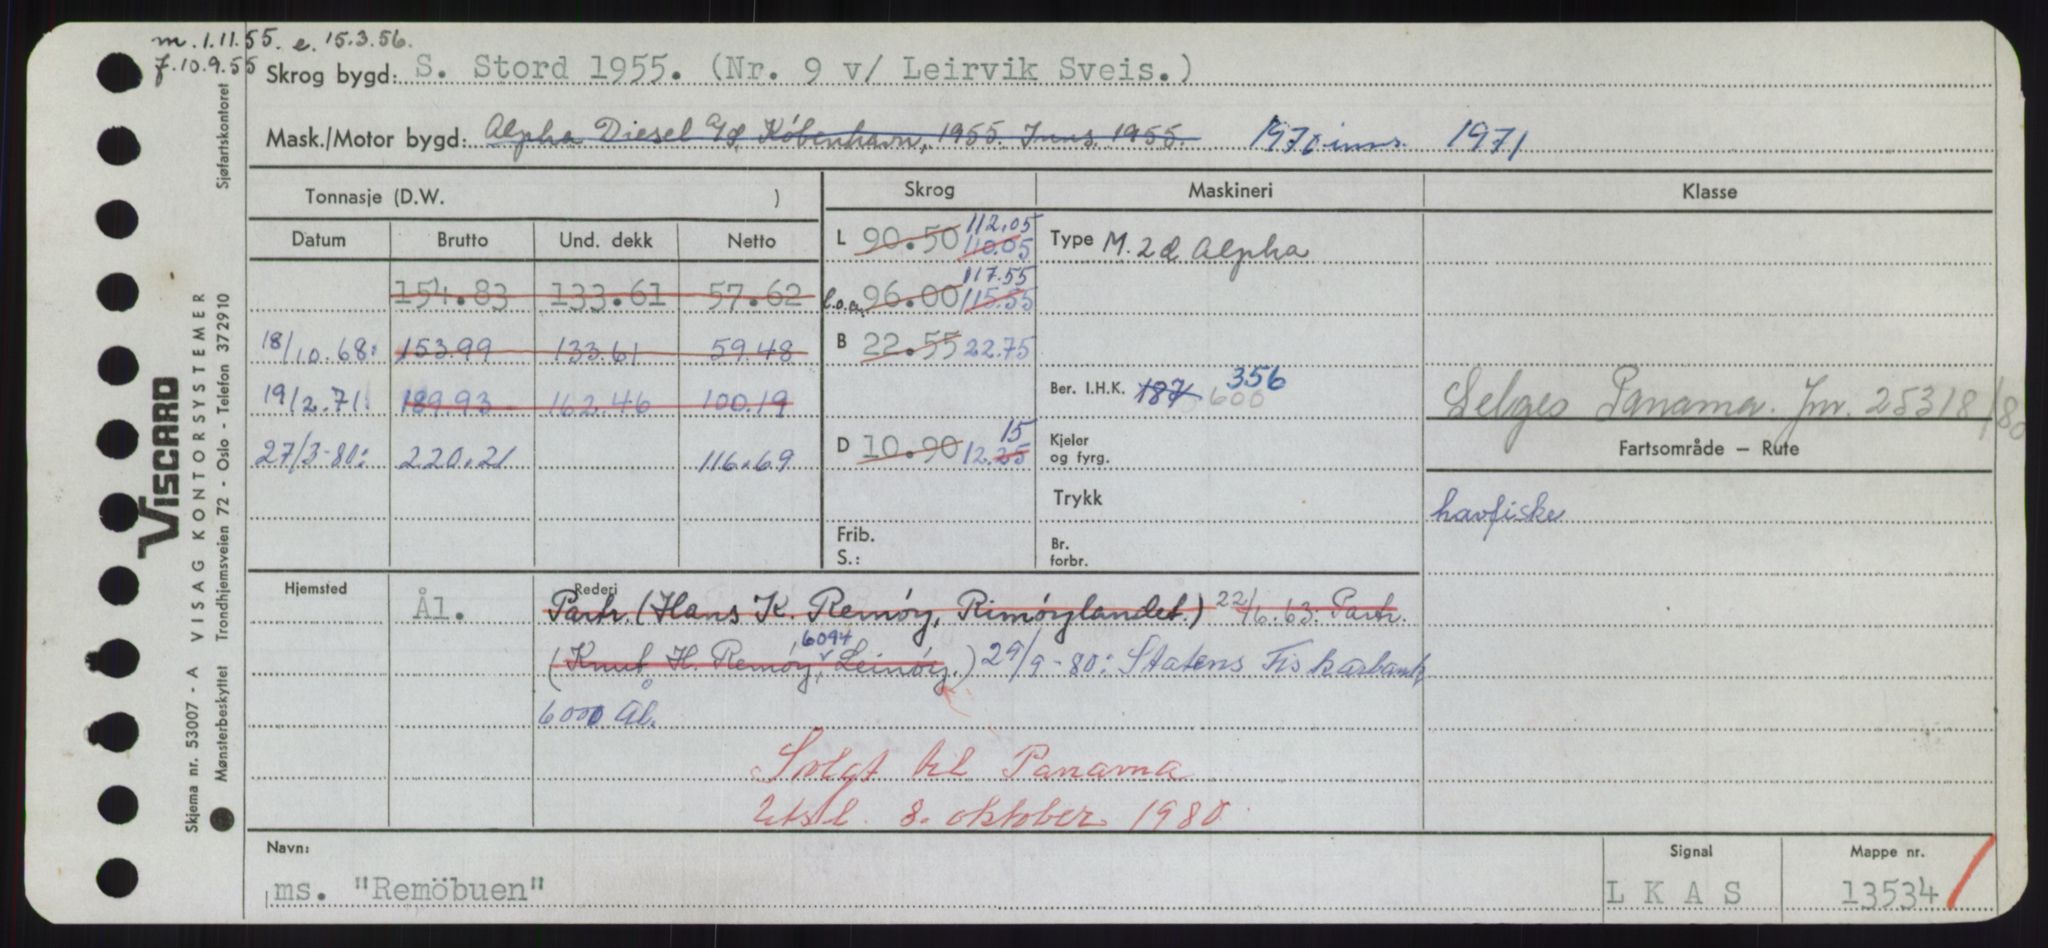 m. 1.11.55. e. 15.3.56.
f. 10.9.55
Skrog bygd: S. Stord 1955. (Nr. 9 v/ Leirvik Sveis.)
Mask./Motor bygd: Alpha Diesel A/S, København, 1955. Inns. 1955. 1970 inns. 1971
Tonnasje (D.W. )
Skrog
Maskineri
Klasse
Datum
Brutto
Und. dekk
Netto
154.83 133.61 57.62
18/10.68: 153.99 133.61 59.48
19/2.71 189.93 162.46 100.19
27/3-80: 220.21 116.69
L 90.50 110.05 112.05
l.o.a. 96.00 115.55 117.55
B 22.55 22.75
D 10.90 12.25 15
Frib.
S.:
Type M. 2d Alpha
Ber. I.H.K. 187 600 356
Kjeler
og fyrg.
Trykk
Br.
forbr.
Selges Panama. Jnr. 25318/80
Fartsområde – Rute
havfiske
Hjemsted
Ål.
Rederi
Partr. (Hans K. Remøy, Rimøylandet.) 22/6.63: Partr.
(Knut H. Remøy, 6094 Leinøy.) 29/9-80: Statens Fiskarbank,
6000 Ål.
Solgt til Panama
Utsl. 8. oktober 1980.
Navn:
ms. "Remöbuen"
Signal
L K A S
Mappe nr.
13534
VISCARD
VISAG KONTORSYSTEMER
Sjøfartskontoret
Skjema nr. 53007 - A
Mønsterbeskyttet Trondhjemsveien 72 - Oslo - Telefon 372910